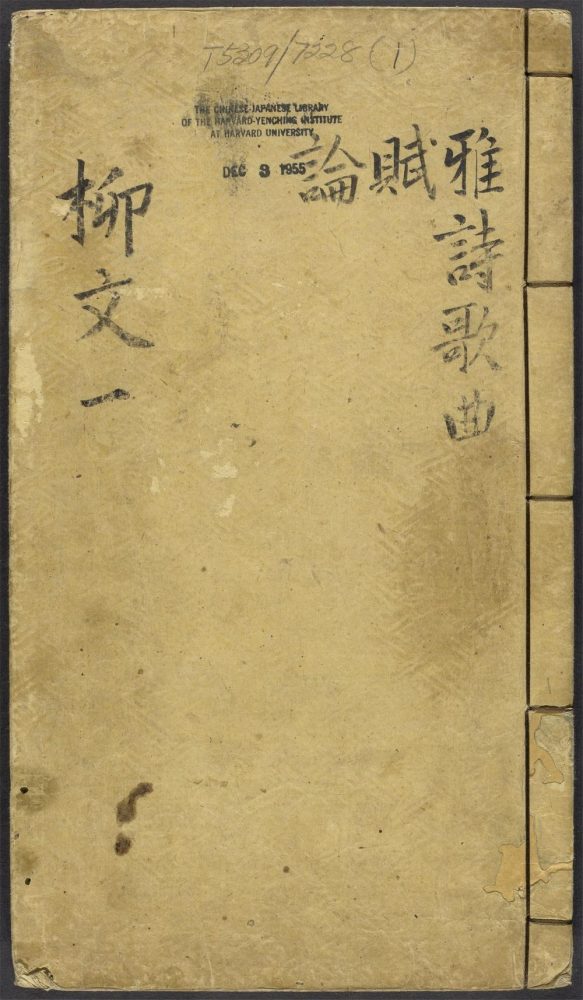 T5309/7228 (1)
THE CHINESE-JAPANESE LIBRARY
OF THE HARVARD-YENCHING INSTITUTE
AT HARVARD UNIVERSITY
DEC 3 1955
雅詩歌曲
賦
論
柳文一